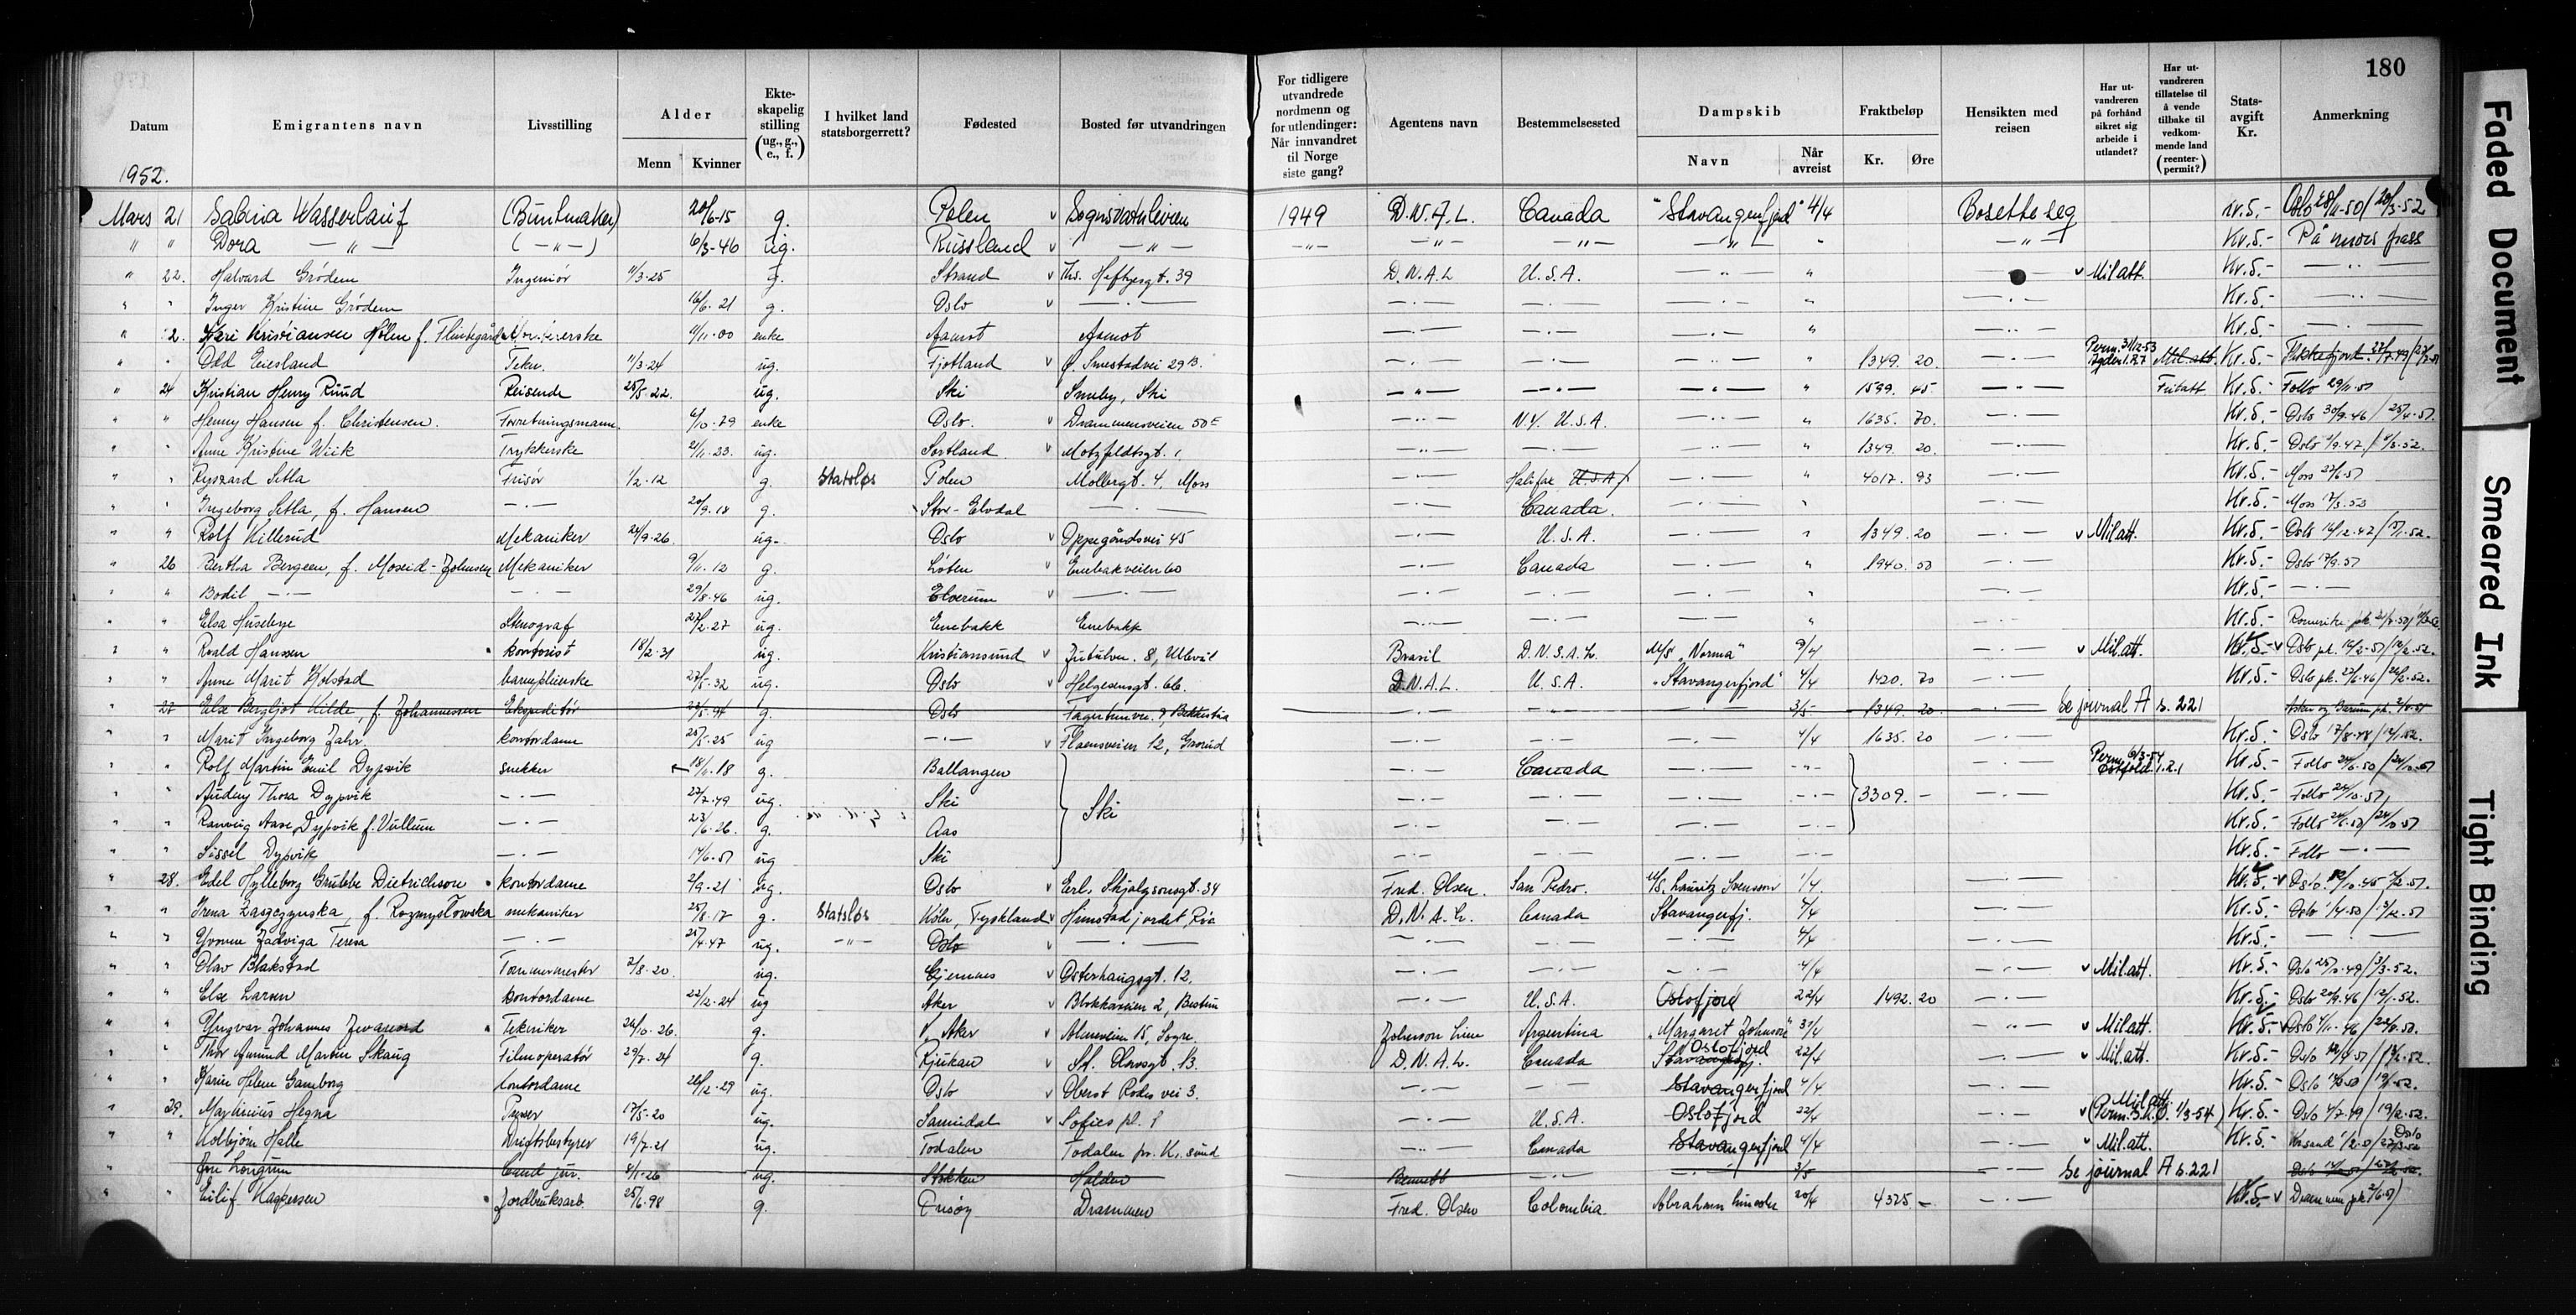 180
Datum
Emigrantens navn
Livsstilling
Alder
Menn
Kvinner
Ekteskapelig stilling (ug., g., e., f.)
I hvilket land statsborgerrett?
Fødested
Bosted før utvandringen
For tidligere utvandrede nordmenn og for utlendinger: Når innvandret til Norge siste gang?
Agentens navn
Bestemmelsessted
Dampskib
Navn
Når avreist
Fraktbeløp
Kr.
Øre
Hensikten med reisen
Har utvandreren på forhånd sikret sig arbeide i utlandet?
Har utvandreren tillatelse til å vende tilbake til vedkommende land (reenterpermit?)
Statsavgift Kr.
Anmerkning
1952.
Mars 21 Sabina Wasserlauf (Buntmaker) 20/6-15 g. Polen v Sognsvatnsveien 1949 D.N.A.L. Canada "Stavangerfjord" 4/4 Bosette seg Kr.5.- Oslo
" " Dora —"— (—"—) 6/3-46 ug. Russland v —"— —"— —"— —"— —"— " —"— Kr.5.- På mors pass
" 22. Halvard Grödem Ingeniör 11/3-25 g. Strand v Ths. Heftyesgt. 39 D.N.A.L U.S.A. —"— " v Mil.att. Kr.5.- —"—
" " Inger Kristine Grödem 16/6-21 g. Oslo v —"— —"— —"— —"— " —"— Kr.5.- —"—
" Kari Kristiansen Holen f. 11/11-00 enke Aamot Aamot —"— —"— —"— " —"— Kr.5.- —"—
" " Odd Eiesland Tekn. 11/3-24 ug. Fjotland v Ø. Smestadvei 29B. —"— —"— —"— " 1349. 20. —"— Perm. 31/12-53 Agder I.R.7 Mil.att. Kr.5.- Flekkefjord
" 24 Kristian Henry Ruud Reisende 25/5-22. ug. Ski Smeby, Ski —"— —"— —"— " 1599. 45. —"— Fritatt Kr.5.- Follo 29/11-51
" " Henny Hansen f. Christensen. Forretningsmann. 6/10-79 enke Oslo. v Drammensveien 50E —"— N.Y. U.S.A. —"— " 1635. 70. —"— Kr.5.- Oslo 30/9-46 / 25/4-51.
" " Anne Kristine Wiik Trykkerske 21/11-23. ug. Sortland v Motzfeldtsgt. 1 —"— —"— —"— " 1349. 20. —"— Kr.5.- Oslo
" " Ryszard Setla Frisör 1/2-12 g. Statsløs Polen Mollergt. 4, Moss —"— Halifax U.S.A. —"— " 4017. 93 —"— Kr.5.- Moss
" " Ingeborg Setla, f. Hansen —"— 20/9-18 g. Stor-Elvdal —"— —"— Canada. —"— " —"— Kr.5.- Moss
" " Rolf Killerud Mekaniker 24/9-26. ug. Oslo v Oppegårdsvei 45 —"— U.S.A. —"— " 1349. 20 —"— v Mil.att. Kr.5.- Oslo
" 26 Bertha Bergeen, f. Moseid-Johnsen Mekaniker 9/11-12 g. Löten v Enebakveien 60 —"— Canada —"— " 1940. 50 —"— Kr.5.- Oslo 17/9-51
" " Bodil —"— —"— 29/8-46 ug. Elverum v —"— —"— —"— —"— " —"— Kr.5.- —"—
" " Elsa Huseby Stenograf 27/2-27 ug. Enebakk Enebakk —"— —"— —"— " —"— Kr.5.- Romerike pk.
" " Roald Hanssen kontorist 18/2-31 ug. Kristiansund v 8, Ullevål Brasil D.N.S.A.L. M/S "Norma" 9/4 —"— v Mil.att. Kr.5.- v Oslo pk.
" " Anne Marit Kolstad barnepleierske 27/5-32 ug. Oslo v Helgesensgt. 66. D.N.A.L. U.S.A. "Stavangerfjord" 4/4 1420. 70 —"— Kr.5.- Oslo pk.
" 27 Else Bergljot Kilde, f. Johannessen Ekspeditör 23/5-94 g. Oslo —"— —"— —"— 3/5 1349. 20. —"— Se journal A s. 221 Asker og Bærum pk.
" " Marit Ingeborg Jahr. kontordame 25/5-25 ug —"— v Flaensveien 12, Grorud —"— —"— —"— 4/4 1635. 20 —"— Kr.5.- Oslo
" " Rolf Martin Emil Dypvik snekker 18/11-18 g. Ballangen Ski —"— Canada —"— —"— —"— Perm. 6/3-54 Østfold I.R.1 Kr.5.- Follo
" " Audny Thora Dypvik —"— 27/7-49 ug. Ski —"— —"— —"— —"— 3309. - —"— Kr.5.- Follo 24/10-51
" " Ranveig Aase Dypvik f. Vullum —"— 23/6-26. g. Aas —"— —"— —"— —"— —"— Kr.5.- Follo
" " Sissel Dypvik —"— 14/6-51 ug Ski —"— —"— —"— —"— Kr.5.- Follo —"—
" 28. Edel Hylleborg Grubbe Dietrichson kontordame 2/9-21 ug. Oslo v Erl. Skjalgsonsgt. 34 Fred. Olsen. San Pedro. M/S. Lauritz Svenson 1/4. —"— Kr.5.- v Oslo
" " Irena Zasgczynska, f. Rozmyslowska mekaniker 25/8-17 g. Statsløs Köln, Tyskland v D.N.A.L. Canada Stavangerfj. 4/4 —"— Kr.5.- Oslo
" " Yvonne Jadviga Teresa —"— 25/4-47 ug. —"— Oslo v —"— —"— —"— —"— 4/4 —"— Kr.5.- —"—
" " Olav Blakstad Tømmermester 2/8-20. ug. Gjemnes v Osterhausgt. 12. —"— —"— —"— 4/4 —"— v Mil.att. Kr.5.- Oslo
" " Else Larsen kontordame 22/12-24 ug Aker v Blokkaveien 2, Bestum —"— U.S.A. Oslofjord 22/4 1492. 20 —"— Kr.5.- Oslo
" " Yngvar Johannes Tekniker 26/10-26. g. V. Aker v Almeveien 15, Sogn. Johnson Line Argentina "Margaret Johnson" 3/4 —"— v Mil.att. Kr.5.- v Oslo
" " Thor Amund Martin Skaug Filmoperatör 29/7-24 g. Rjukan v St. Olavsgt. 1B. D.N.A.L. Canada Stavangerfj. Oslofjord 22/4 —"— v Mil.att. Kr.5.- Oslo
" " Karin Helene Gamborg kontordame 26/12-29 ug. Oslo v Oberst Rodes vei 3. —"— —"— Stavangerfjord 4/4 —"— Kr.5.- Oslo
" 29. Martinius Hegna 17/5-20 ug. Sannidal v Sofies pl. 1 —"— U.S.A. Oslofjord 22/4 —"— v Mil.att. (Perm. 1/3-54) Kr.5.- Oslo
" " Kolbjörn Halle Driftsbestyrer 19/7-21 ug. Todalen Todalen pr. Kr.sund —"— Canada Stavangerfjord 4/4 —"— v Mil.att. Kr.5.- Oslo
" " Cand jur. 8/1-26 ug. Stokken Halden Bennett —"— —"— 3/5 —"— Se journal A s. 221
" " Eilif Kaspersen Jordbruksarb. 25/6-98 g. Drammen Fred. Olsen Colombia. Abraham Lincoln 20/4 4325 - —"— Kr.5.- v Drammen pk.
Faded Document
Smeared Ink
Tight Binding